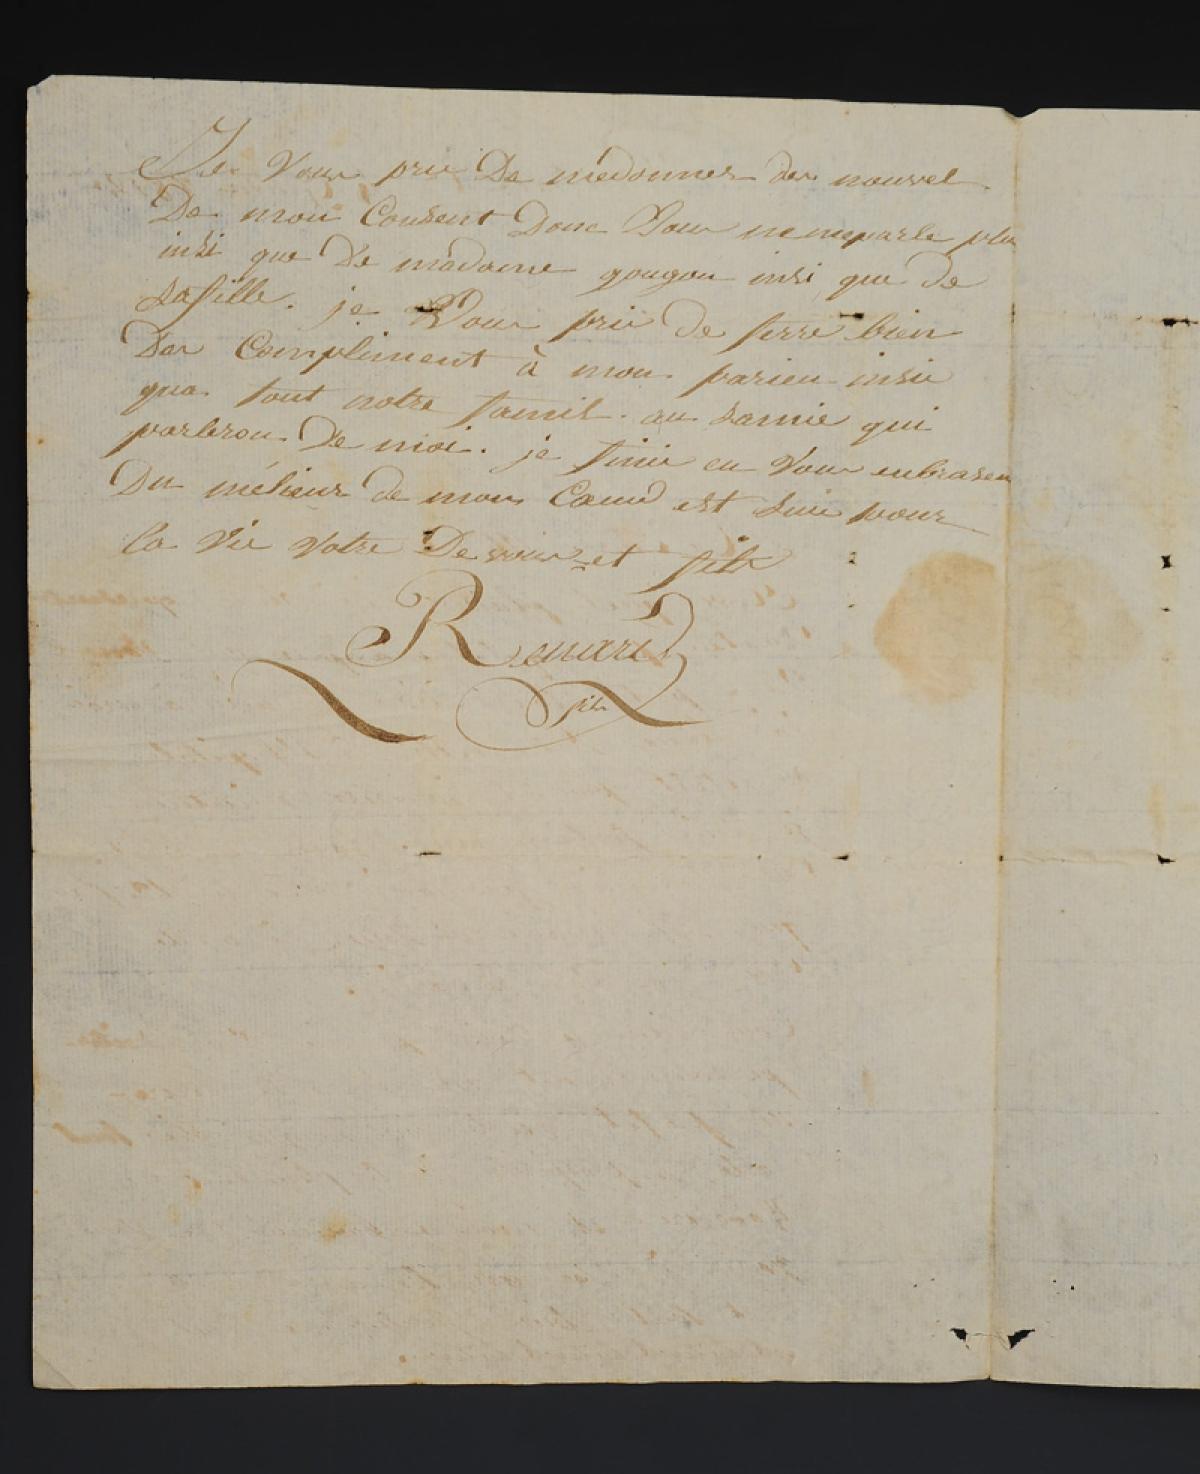 Je Vous prie De medonner des nouvel
De mon Cousent Donc Vous nemeparle plus
insi que De madame gougou insi que de
safille. je Vous prie de ferre bien
Des Compliment à mon parien insie
que tout notre famil. au samie qui
parleron De moi. je finie en Vous enbrasen
Du mélieur de mon Coeur est suie pour
la vie votre De et fils
Renard
fils